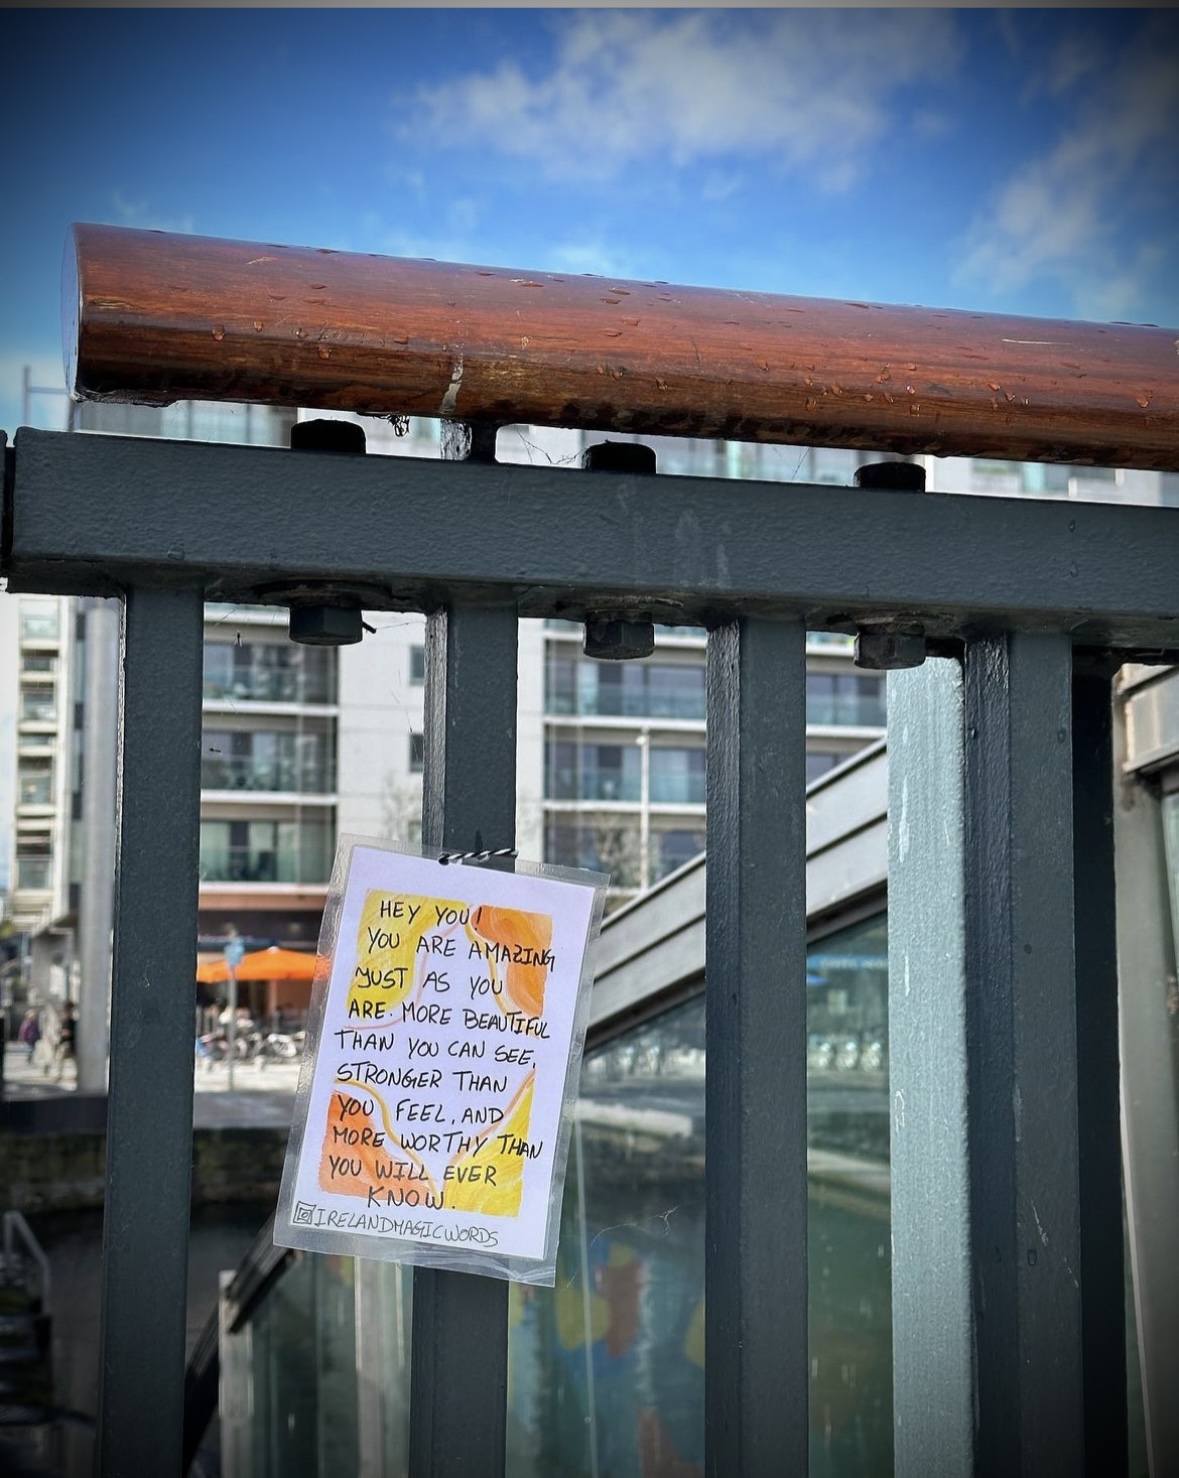 HEY YOU!
YOU ARE AMAZING
JUST AS YOU
ARE. MORE BEAUTIFUL
THAN YOU CAN SEE,
STRONGER THAN
YOU FEEL, AND
MORE WORTHY THAN
YOU WILL EVER
KNOW.
IRELANDMAGICWORDS